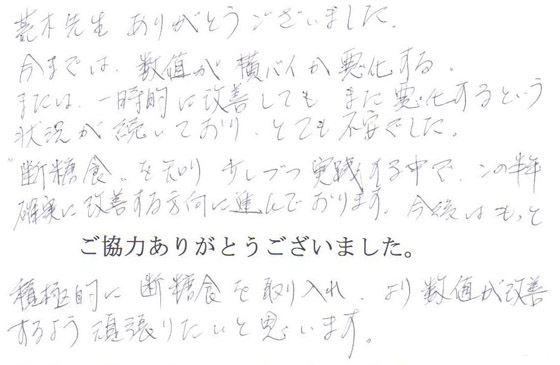 荒木先生 ありがとうございました。
今までは、数値が横バイか悪化する。
または、一時的に改善しても また悪化するという
状況が続いており、とても不安でした。
"断糖食"を知り 少しづつ実践する中で、この半年
確実に改善する方向に進んでおります。今後はもっと
ご協力ありがとうございました。
積極的に断糖食を取り入れ、より数値が改善
するよう頑張りたいと思います。